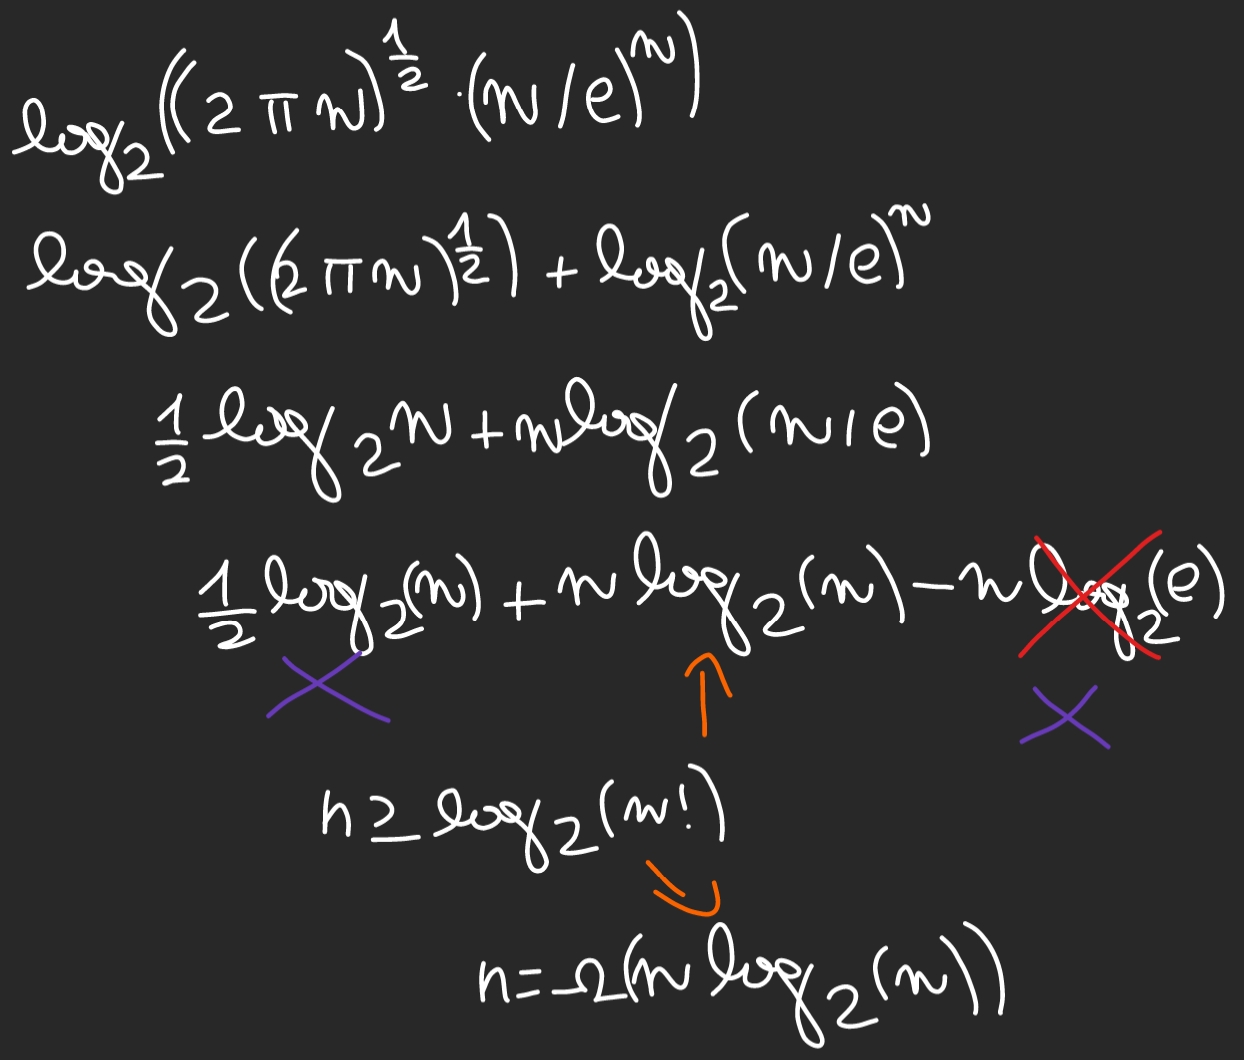 log₂((2πn)^½ · (n/e)^n)
log₂((2πn)^½) + log₂(n/e)^n
½ log₂ n + n log₂(n/e)
½ log₂(n) + n log₂(n) − n log₂(e)
h ≥ log₂(n!)
h = Ω(n log₂(n))